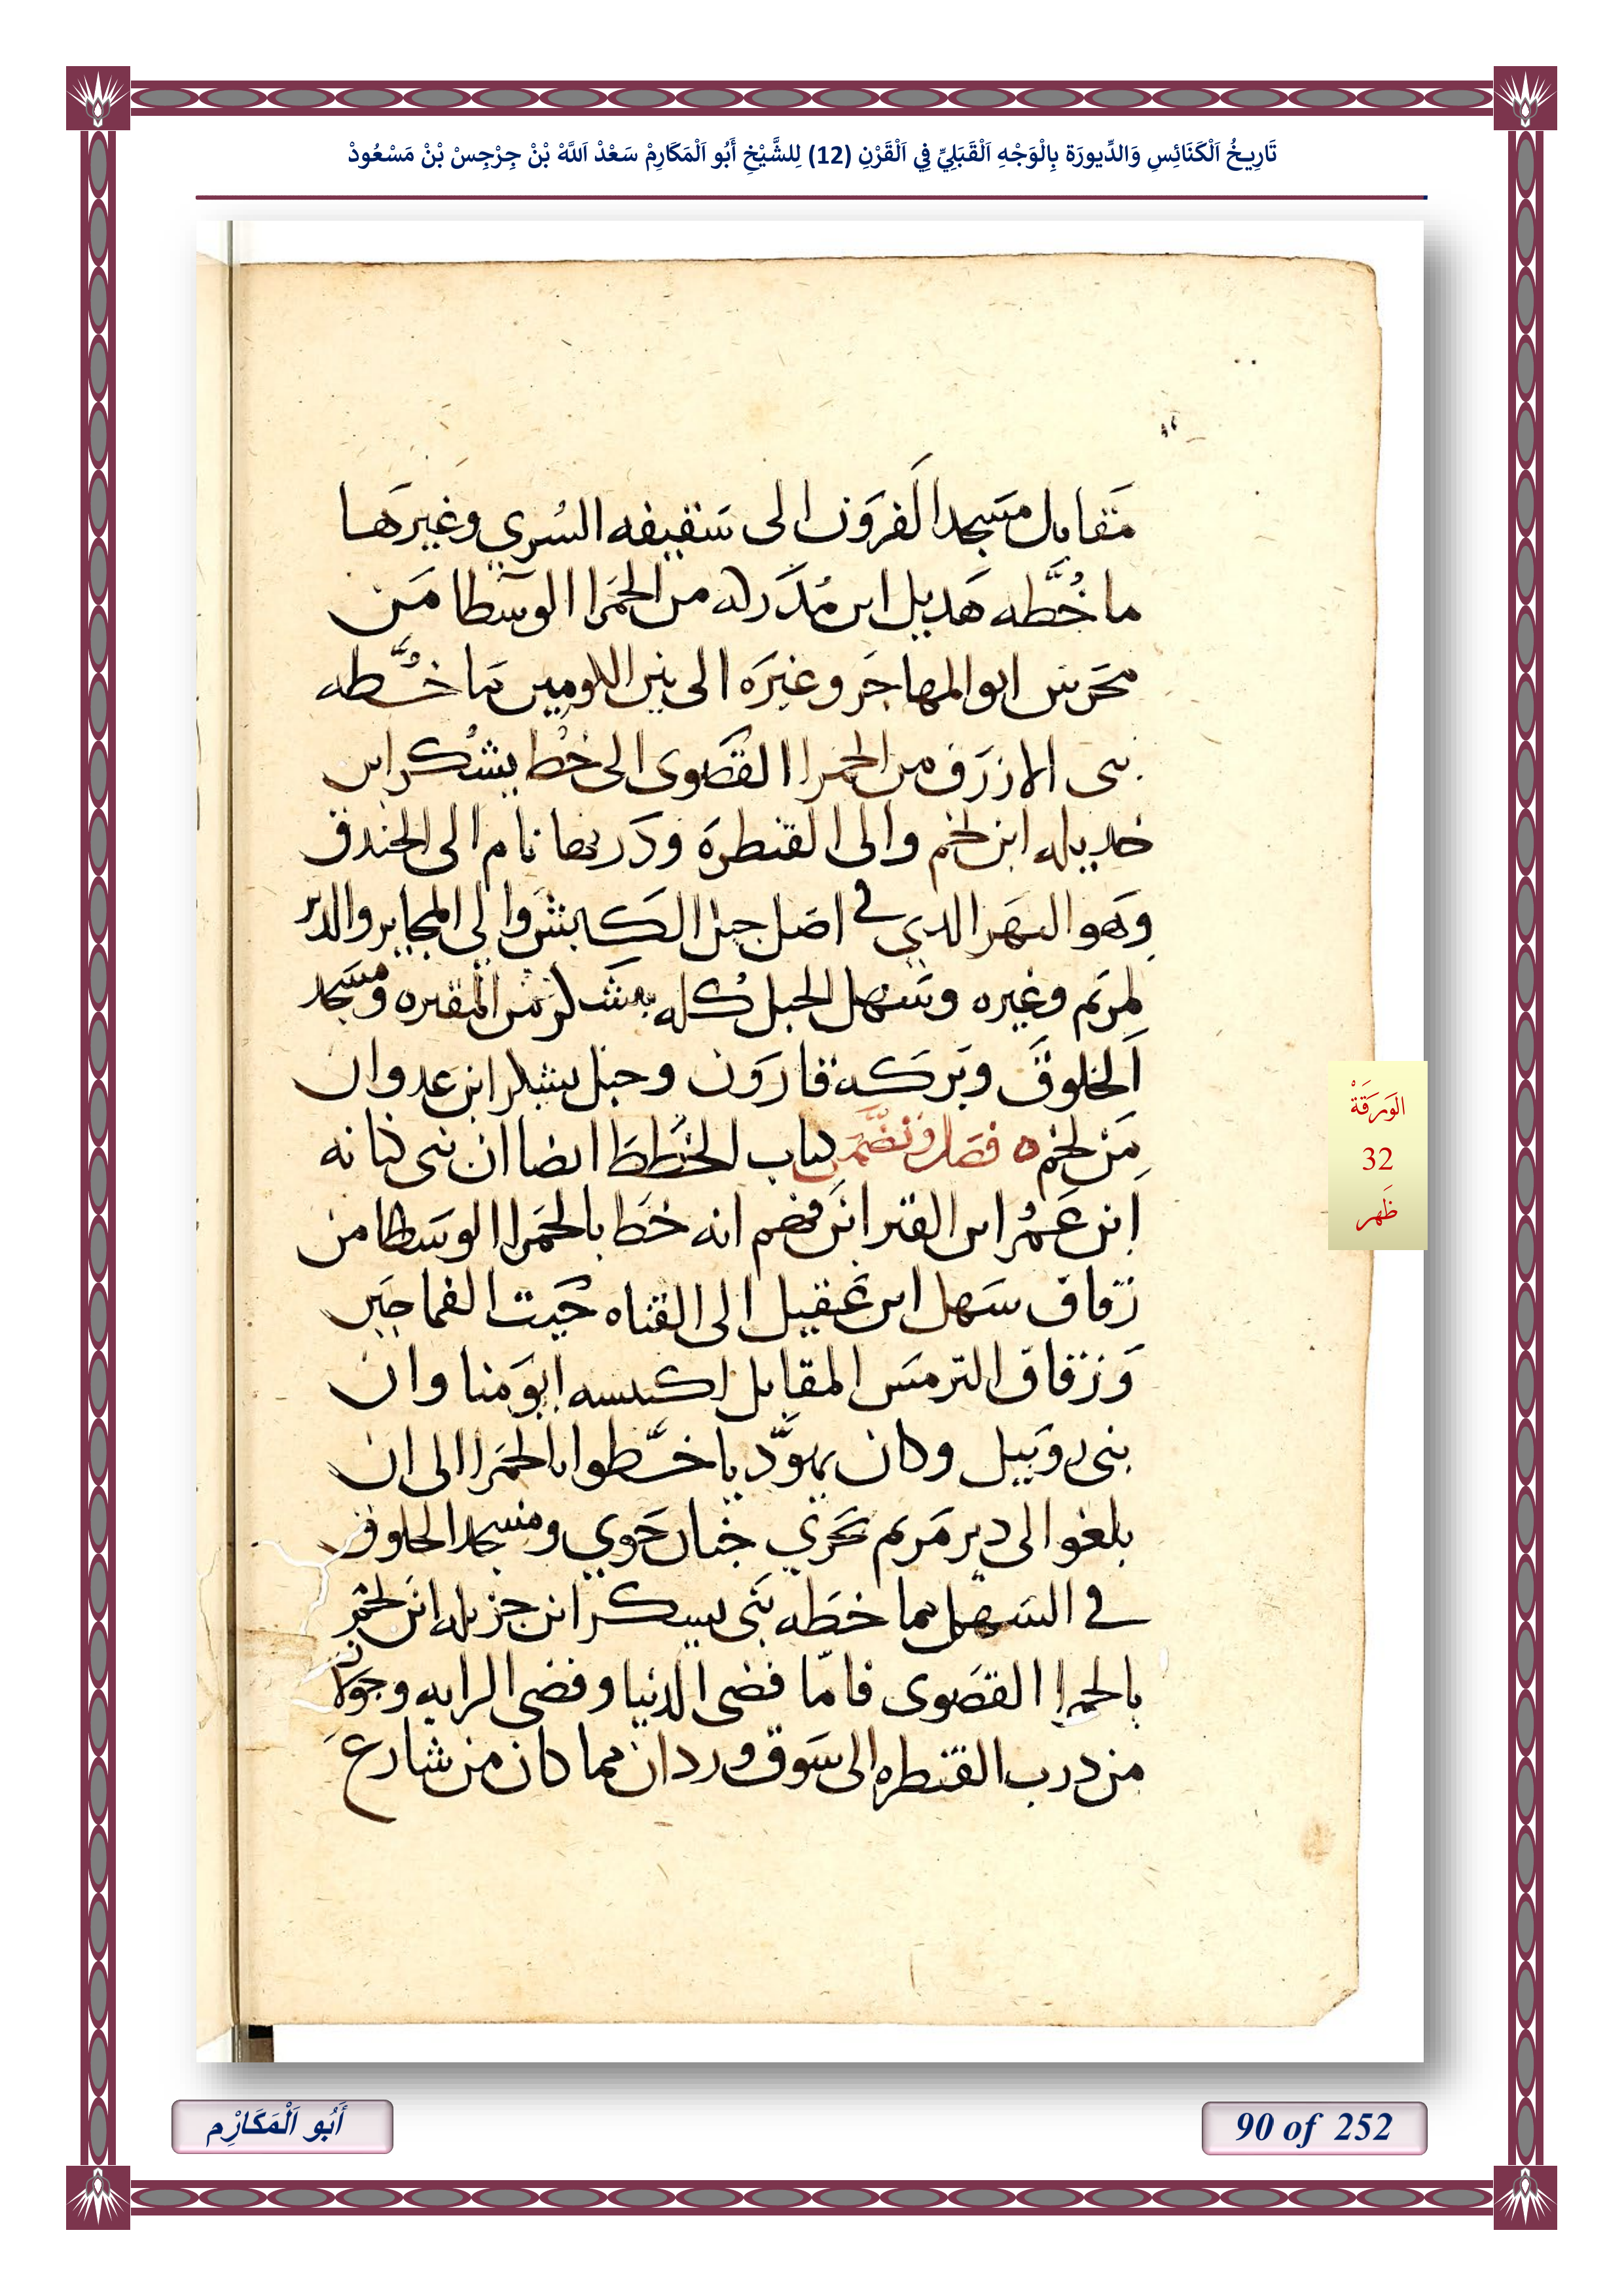 تَارِيخُ اَلْكَنَائِسِ وَالدِّيورَة بِالْوَجْهِ اَلْقَبَلِيِّ فِي اَلْقَرْنِ (12) لِلشَّيْخِ أَبُو اَلْمَكَارِمْ سَعْدْ اَللَّهْ بْنْ جِرْجِسْ بْنْ مَسْعُودْ
مقابل مسجد القرون الى سقيفه السري وغيرها
ما خطه هديل ابن مدركه من الحمرا الوسطا من
محرس ابو المهاجر وغيره الى بين اللومين مما خطه
بنى الازرق من الحمرا القصوى الى خط يشكر ابن
خديله ابن لخم والى القنطره ودربها نام الى الخندق
وهو النهر الدي في اصل جبل الكبش والى المجاير والدير
لمريم وغيره وسهل الجبل كله المقبره ومسجد
الخلوق وبركه قارون وجبل يشكر ابن عدوان
من لخم ٥ فصل وتضمن كتاب الخطط ايضا ان بنى كنانه
ابن عمر ابن القبر ابن فهم انه خط بالحمرا الوسطا من
زقاق سهل ابن عقيل الى القناه حيت الفماجير
وزقاق الترمس المقابل لكنيسه ابو منا وان
بنى روبيل وكان يهود يا خطوا بالحمرا الى ان
بلغوا الى دير مريم بحري جنان حوي ومسجد الخلوق
في السهل مما خطه بنى يسكر ابن جزيله ابن لخم
بالحمرا القصوى فاما فضى الدنيا وفضى الرايه وجولان
من درب القنطره الى سوق وردان مما كان من شارع
الوَرَقَةْ
32
ظَهر
أَبُو اَلْمَكَارِْم
90 of 252